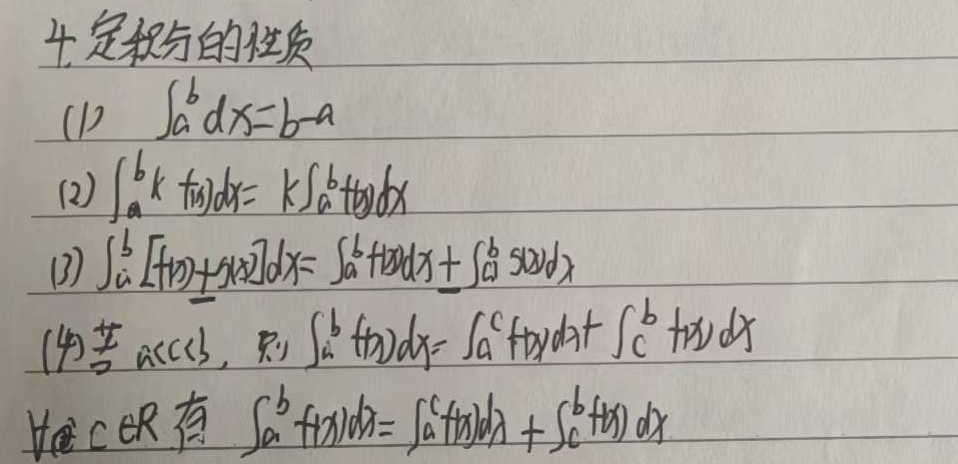 4. 定积分的性质
(1) ∫_a^b dx=b-a
(2) ∫_a^b k f(x)dx= k∫_a^b f(x)dx
(3) ∫_a^b [f(x)±g(x)]dx= ∫_a^b f(x)dx ± ∫_a^b g(x)dx
(4) 若 a<c<b, 则 ∫_a^b f(x)dx= ∫_a^c f(x)dx+ ∫_c^b f(x)dx
∀ c∈R 有 ∫_a^b f(x)dx= ∫_a^c f(x)dx + ∫_c^b f(x)dx